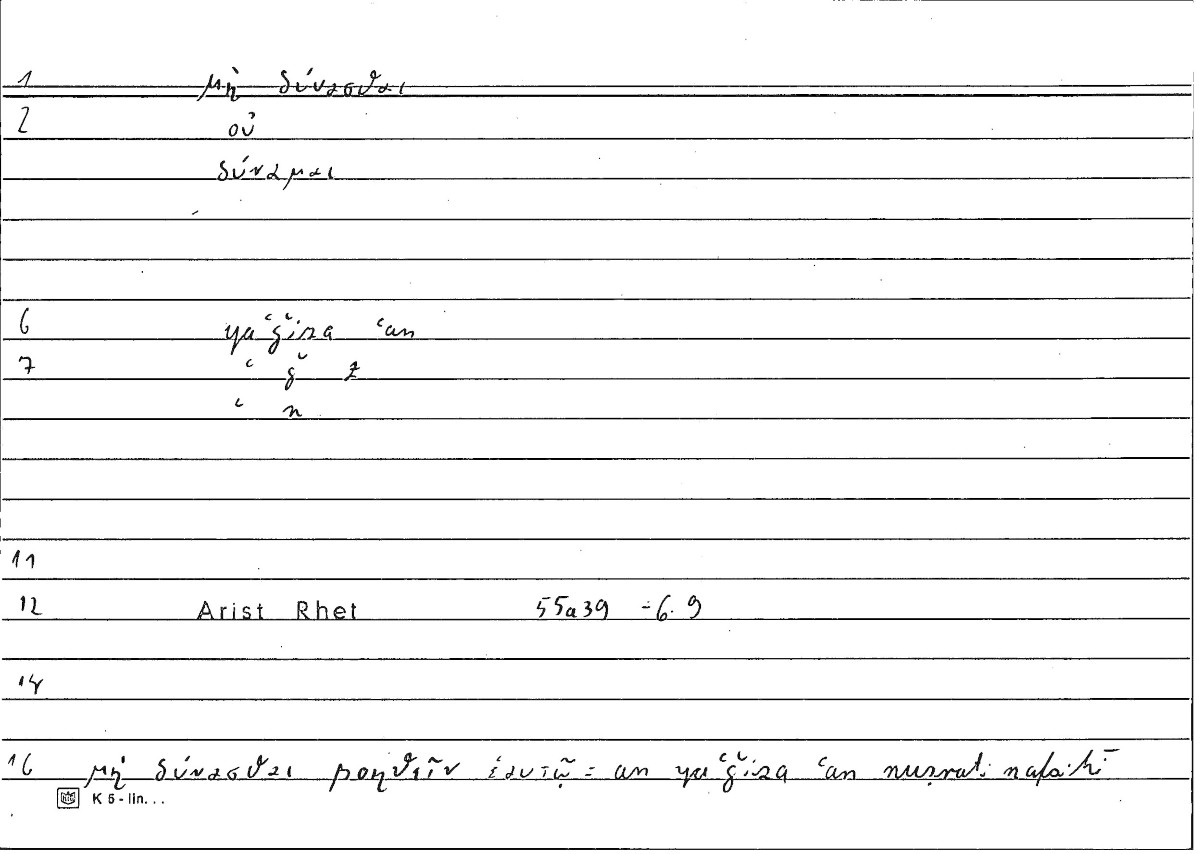 1 μὴ δύνασθαι
2 οὐ
δύναμαι
6 yaʿǧiza ʿan
7 ʿ ǧ z
ʿ n
11
12 Arist Rhet 55a39 = 6.9
14
16 μὴ δύνασθαι βοηθεῖν ἑαυτῷ = an yaʿǧiza ʿan nuṣrati nafsihī
K 5 - lin. . .